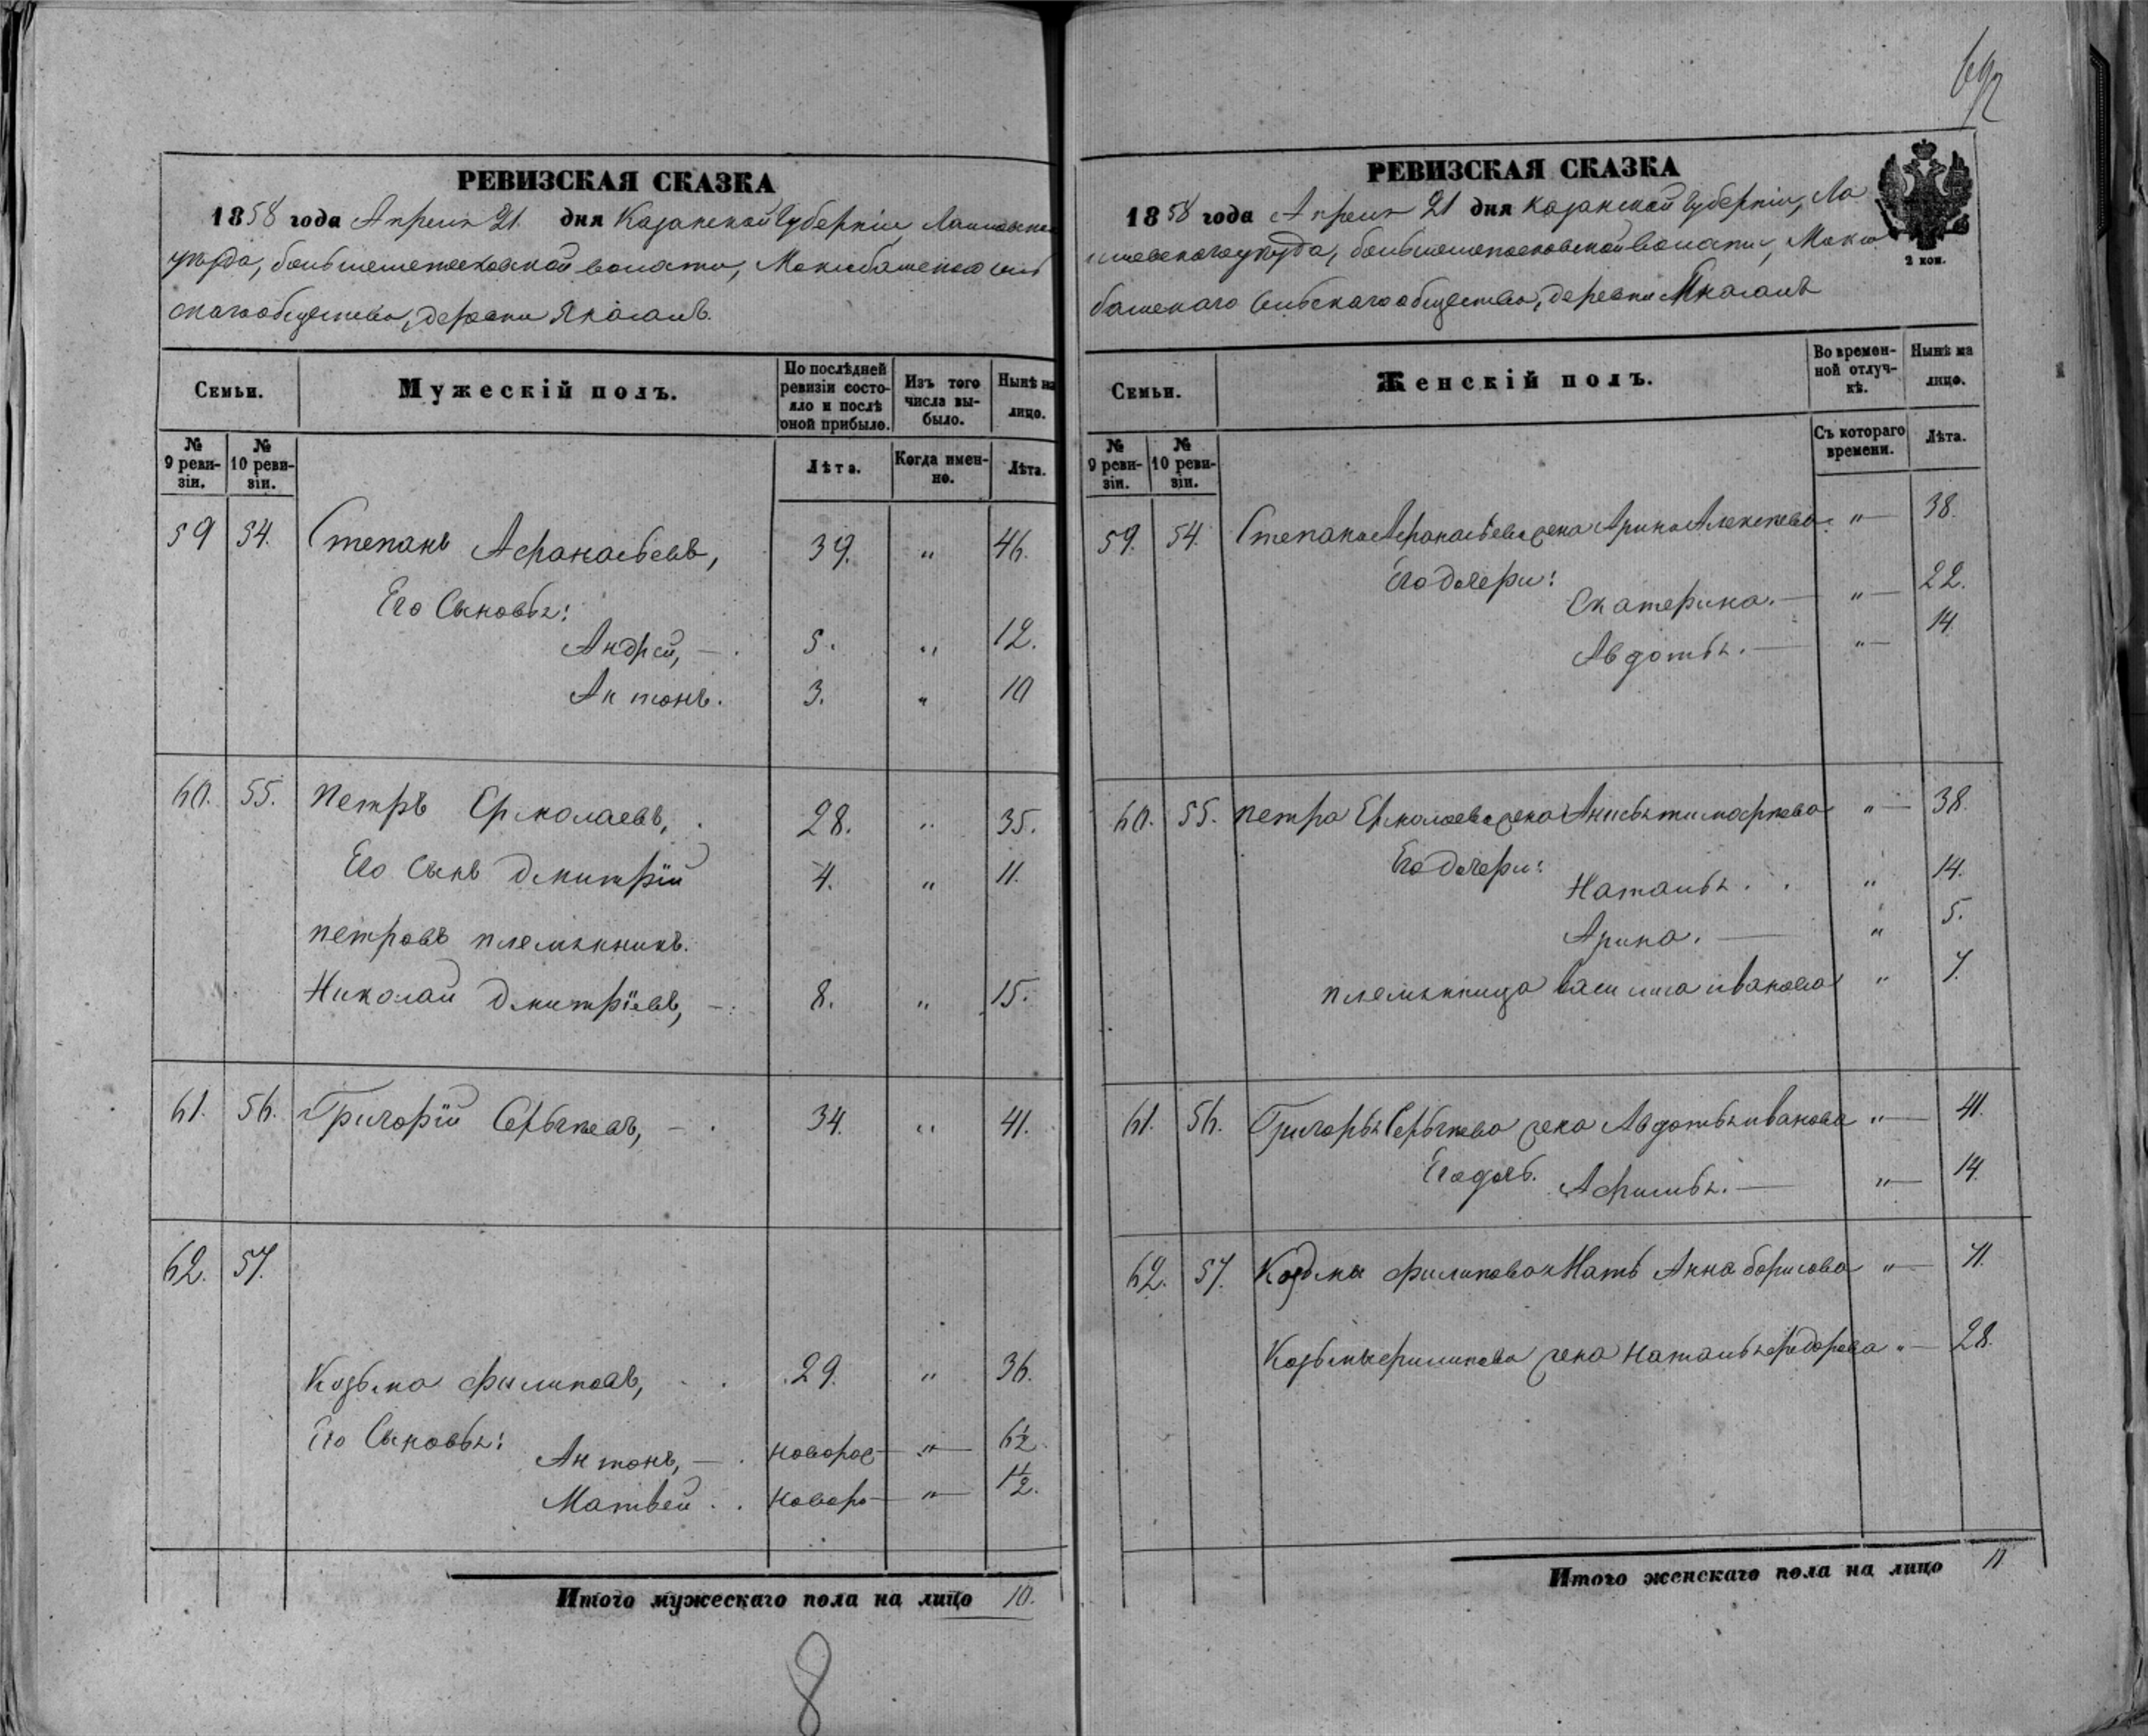 692
РЕВИЗСКАЯ СКАЗКА
1858 года Апреля 21 дня Казанской Губерніи, Лаишевскаго
уезда, большеметесковской волости, Макс­ибашскаго сель
скаго общества, деревни Янасалъ.
Семьи.
Мужескій полъ.
По послѣдней ревизіи состояло и послѣ оной прибыло.
Изъ того числа выбыло.
Нынѣ на лицо.
№ 9 ревизіи.
№ 10 ревизіи.
Лѣта.
Когда именно.
Лѣта.
59 54. Степанъ Афанасьевъ, 39. " 46.
Его Сыновья:
Андрей, — . 5. " 12.
Антонъ. 3. " 10
60. 55. Петръ Ермолаевъ, . 28. " 35.
Его Сынъ Дмитрій 4. " 11.
петровъ племянникъ.
Николай Дмитріевъ, — 8. " 15.
61. 56. Григорій Сергѣевъ, — . 34. " 41.
62. 57.
Козьма Филиповъ, . 29. " 36.
Его Сыновья:
Антонъ, — . новорож — " — 6½
Матвей . . новоро — " — 1½.
Итого мужескаго пола на лицо 10.
8
РЕВИЗСКАЯ СКАЗКА
1858 года Апреля 21 дня Казанской Губерніи, Ла
ишевскаго уезда, волости,
башскаго Сельскаго общества, деревни
2 коп.
Семьи.
Женскій полъ.
Во временной отлучкѣ.
Нынѣ на лицо.
№ 9 ревизіи.
№ 10 ревизіи.
Съ котораго времени.
Лѣта.
59. 54. Степана Афанасьева жена Арина Алексеева. " — 38.
Его дочери:
Екатерина. — " — 22.
Авдотья. — " — 14.
60. 55. петра Ермолаева жена Анисья тимофеева " — 38.
Его дочери:
Наталья . . " 14.
Арина. — " 5.
племянница василиса иванова " 7.
61. 56. Григорья Сергѣева жена Авдотья иванова " — 41.
Его дочь. Афимья. — " — 14.
62. 57. Козьмы филипова Мать Анна борисова " — 71.
Козьмы филипова жена наталья федорова " — 28.
Итого женскаго пола на лицо 11